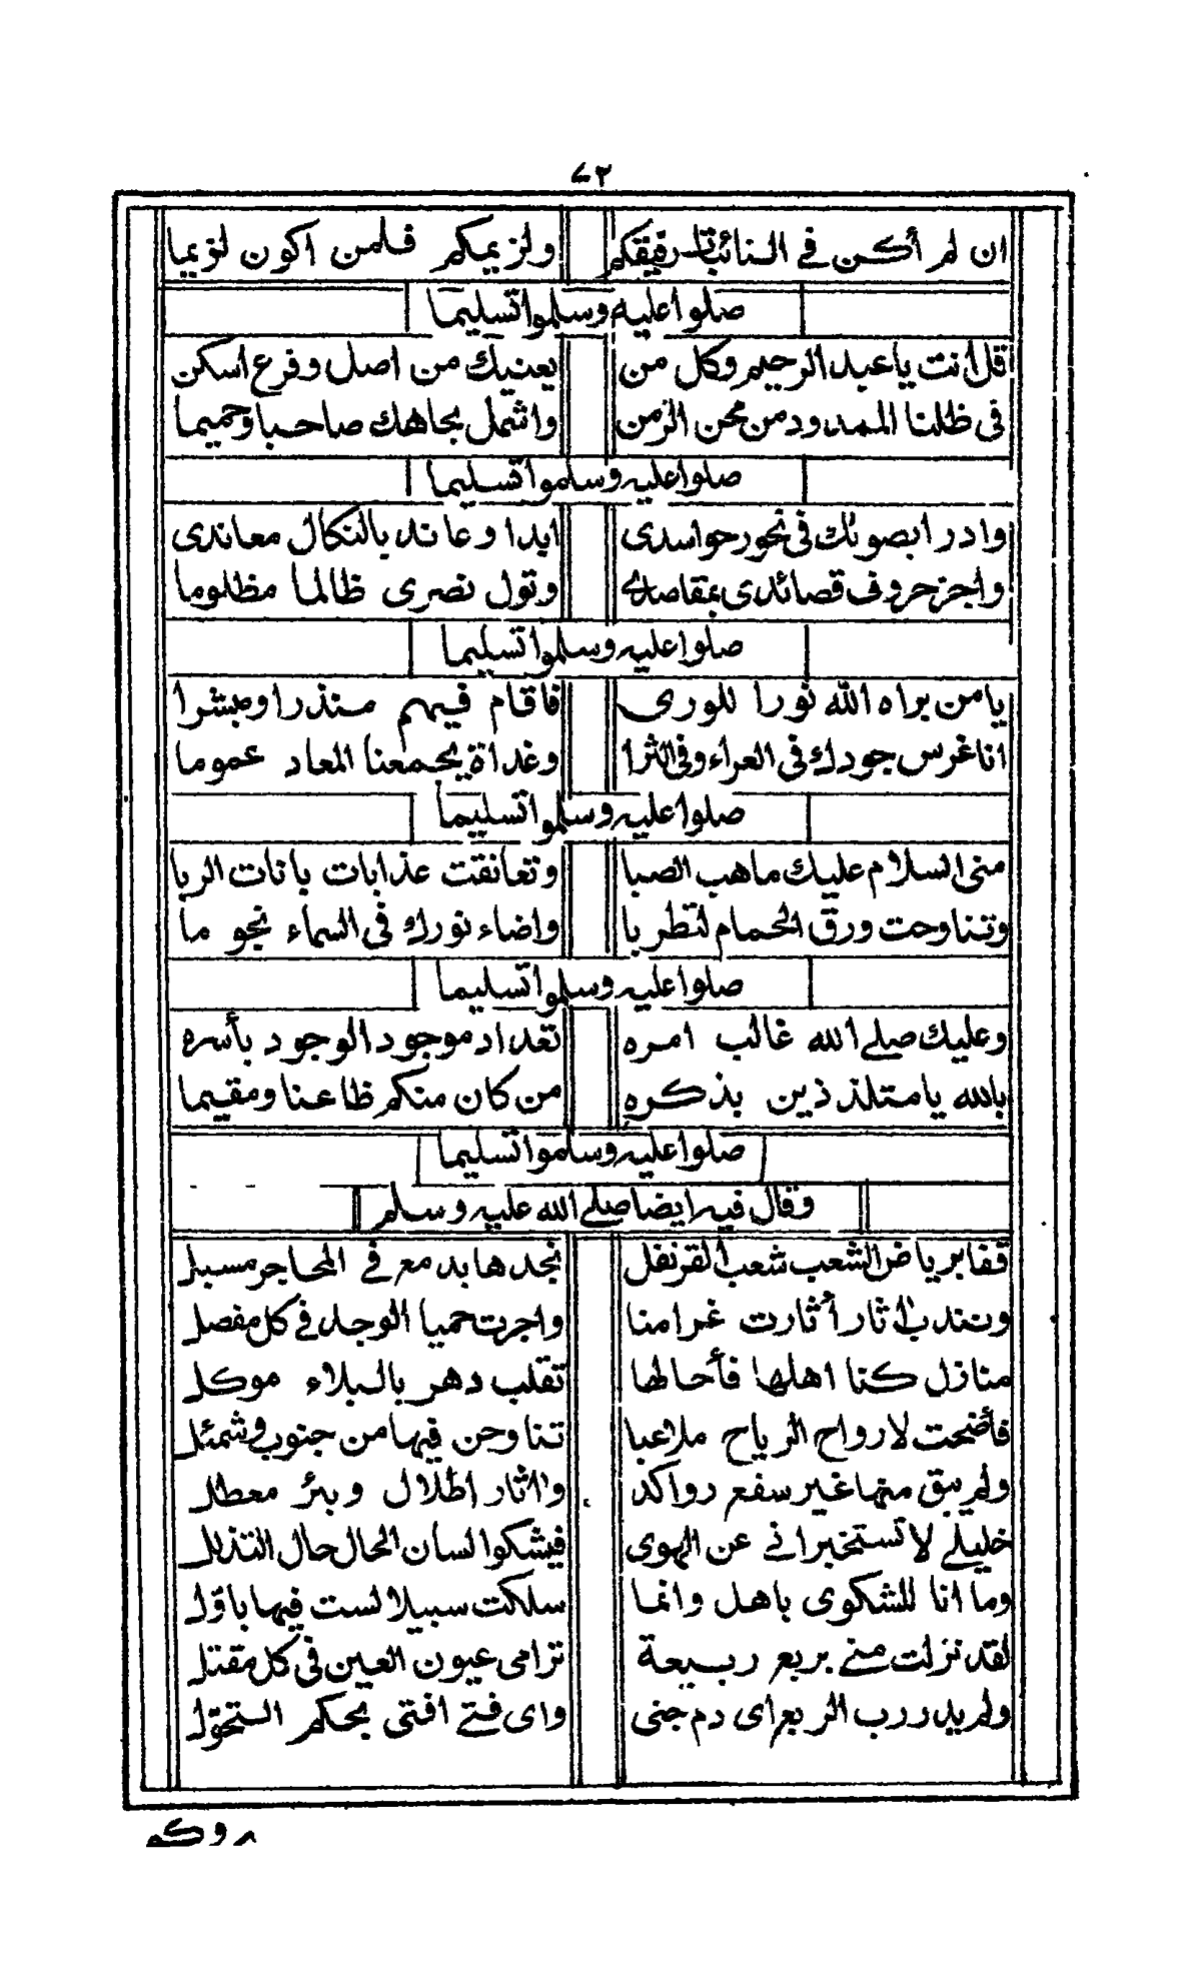 ٧٢
ان لم أكن في النائبات رفيقكم ولزيمكم فلمن اكون لزيما
صلوا عليه وسلموا تسليما
قل انت يا عبد الرحيم وكل من يعنيك من اصل وفرع اسكن
فى ظلنا الممدود من محن الزمن واشمل بجاهك صاحبا وحميما
صلوا عليه وسلموا تسليما
وادرا بصونك فى نحور حواسدى ابدا وعاند بالنكال معاندى
واجز حروف قصائدى بمقاصدى وتول نصرى ظالما مظلوما
صلوا عليه وسلموا تسليما
يا من براه الله نورا للورى فاقام فيهم منذرا ومبشرا
انا غرس جودك فى العراء وفى الثرا وغداة يجمعنا المعاد عموما
صلوا عليه وسلموا تسليما
منى السلام عليك ما هب الصبا وتعانقت عذابات بانات الربا
وتناوحت ورق الحمام لتطربا واضاء نورك فى السماء نجوما
صلوا عليه وسلموا تسليما
وعليك صلے الله غالب امره تعداد موجود الوجود بأسره
بالله يا متلذذين بذكره من كان منكم ظاعنا ومقيما
صلوا عليه وسلموا تسليما
وقال فيه ايضا صلے الله عليه وسلم
قفا برياض الشعب شعب القرنفل نجدها بدمع في المحاجر مسبل
ونندب اثار أثارت غرامنا واجرت حميا الوجد في كل مفصل
منازل كنا اهلها فأحالها تقلب دهر بالبلاء موكل
فأضحت لارواح الرياح ملاعبا تناوحن فيها من جنوب وشمئل
ولم يبق منها غير سفع رواكد واثار اطلال وبئر معطل
خليلے لا تستخبرانے عن الهوى فيشكوا لسان الحال حال التذلل
وما انا للشكوى باهل وانما سلكت سبيلا لست فيها باوّل
لقد نزلت منے بربع ربيعة ترامى عيون العين فى كل مقتل
ولم يدر رب الربع اى دم جنى واى فتے افتى بحكم التحوّل